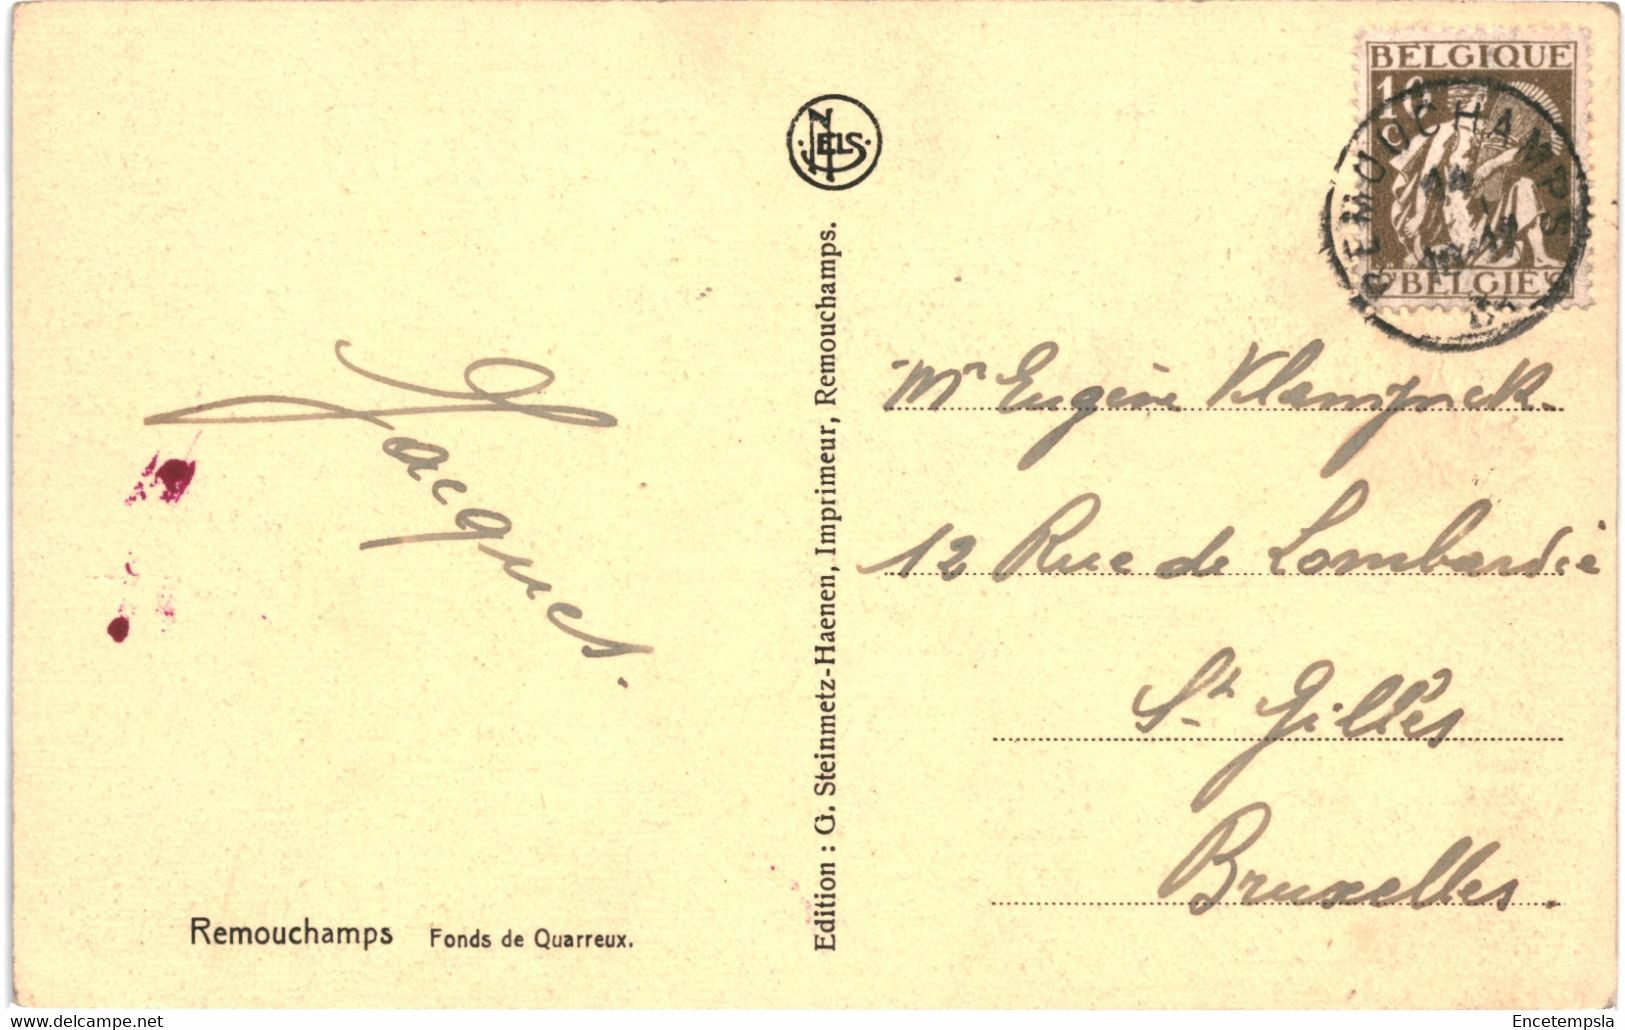 BELGIQUE
10
BELGIE
REMOUCHAMPS
NELS
Edition : G. Steinmetz-Haenen, Imprimeur, Remouchamps.
Jacques.
Mr Eugène
12 Rue de Lombardie
St Gilles
Bruxelles.
Remouchamps Fonds de Quarreux.
www.delcampe.net
Encetempsla